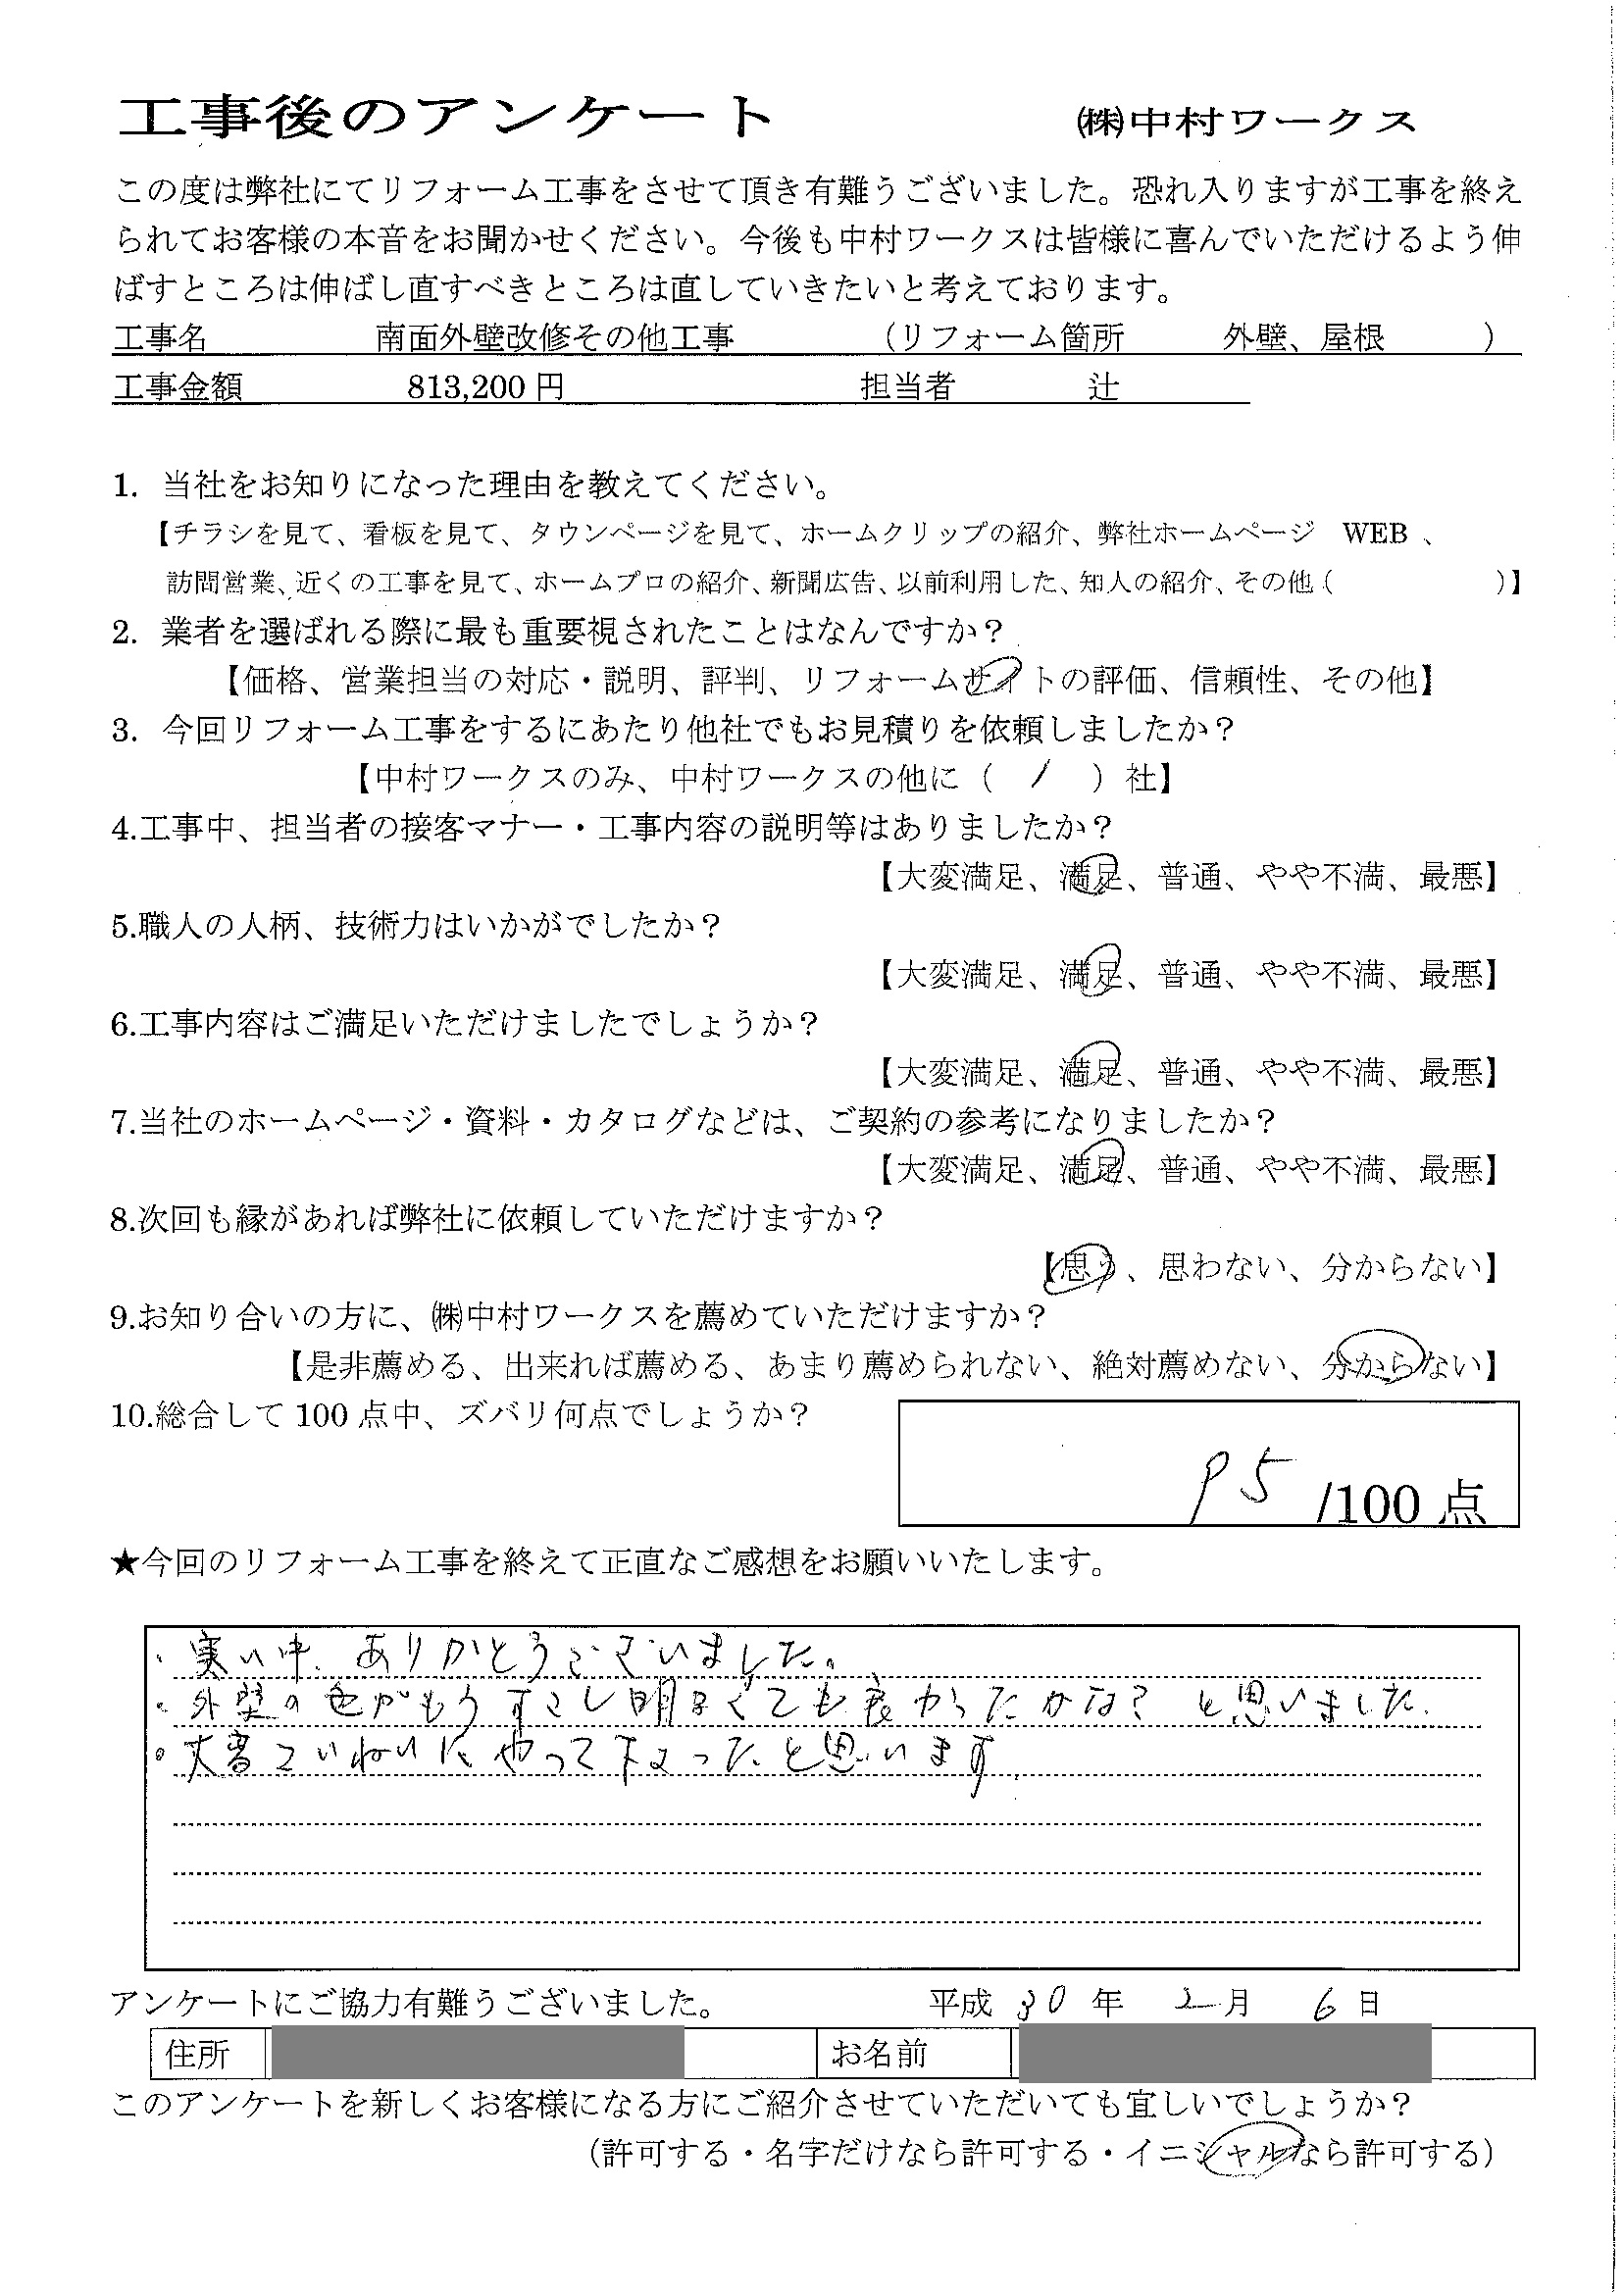 工事後のアンケート ㈱中村ワークス
この度は弊社にてリフォーム工事をさせて頂き有難うございました。恐れ入りますが工事を終え
られてお客様の本音をお聞かせください。今後も中村ワークスは皆様に喜んでいただけるよう伸
ばすところは伸ばし直すべきところは直していきたいと考えております。
工事名 南面外壁改修その他工事 （リフォーム箇所 外壁、屋根 ）
工事金額 813,200 円 担当者 辻
1. 当社をお知りになった理由を教えてください。
【チラシを見て、看板を見て、タウンページを見て、ホームクリップの紹介、弊社ホームページ WEB 、
訪問営業、近くの工事を見て、ホームプロの紹介、新聞広告、以前利用した、知人の紹介、その他（ ）】
2. 業者を選ばれる際に最も重要視されたことはなんですか？
【価格、営業担当の対応・説明、評判、リフォームサイトの評価、信頼性、その他】
3. 今回リフォーム工事をするにあたり他社でもお見積りを依頼しましたか？
【中村ワークスのみ、中村ワークスの他に（ 1 ）社】
4.工事中、担当者の接客マナー・工事内容の説明等はありましたか？
【大変満足、満足、普通、やや不満、最悪】
5.職人の人柄、技術力はいかがでしたか？
【大変満足、満足、普通、やや不満、最悪】
6.工事内容はご満足いただけましたでしょうか？
【大変満足、満足、普通、やや不満、最悪】
7.当社のホームページ・資料・カタログなどは、ご契約の参考になりましたか？
【大変満足、満足、普通、やや不満、最悪】
8.次回も縁があれば弊社に依頼していただけますか？
【思う、思わない、分からない】
9.お知り合いの方に、㈱中村ワークスを薦めていただけますか？
【是非薦める、出来れば薦める、あまり薦められない、絶対薦めない、分からない】
10.総合して 100 点中、ズバリ何点でしょうか？
95 /100 点
★今回のリフォーム工事を終えて正直なご感想をお願いいたします。
・寒い中、ありがとうございました。
・外壁の色がもうすこし明るくても良かったかな？と思いました.
・大変ていねいにやって下さったと思います
アンケートにご協力有難うございました。 平成 30 年 2 月 6 日
住所 お名前
このアンケートを新しくお客様になる方にご紹介させていただいても宜しいでしょうか？
（許可する・名字だけなら許可する・イニシャルなら許可する）